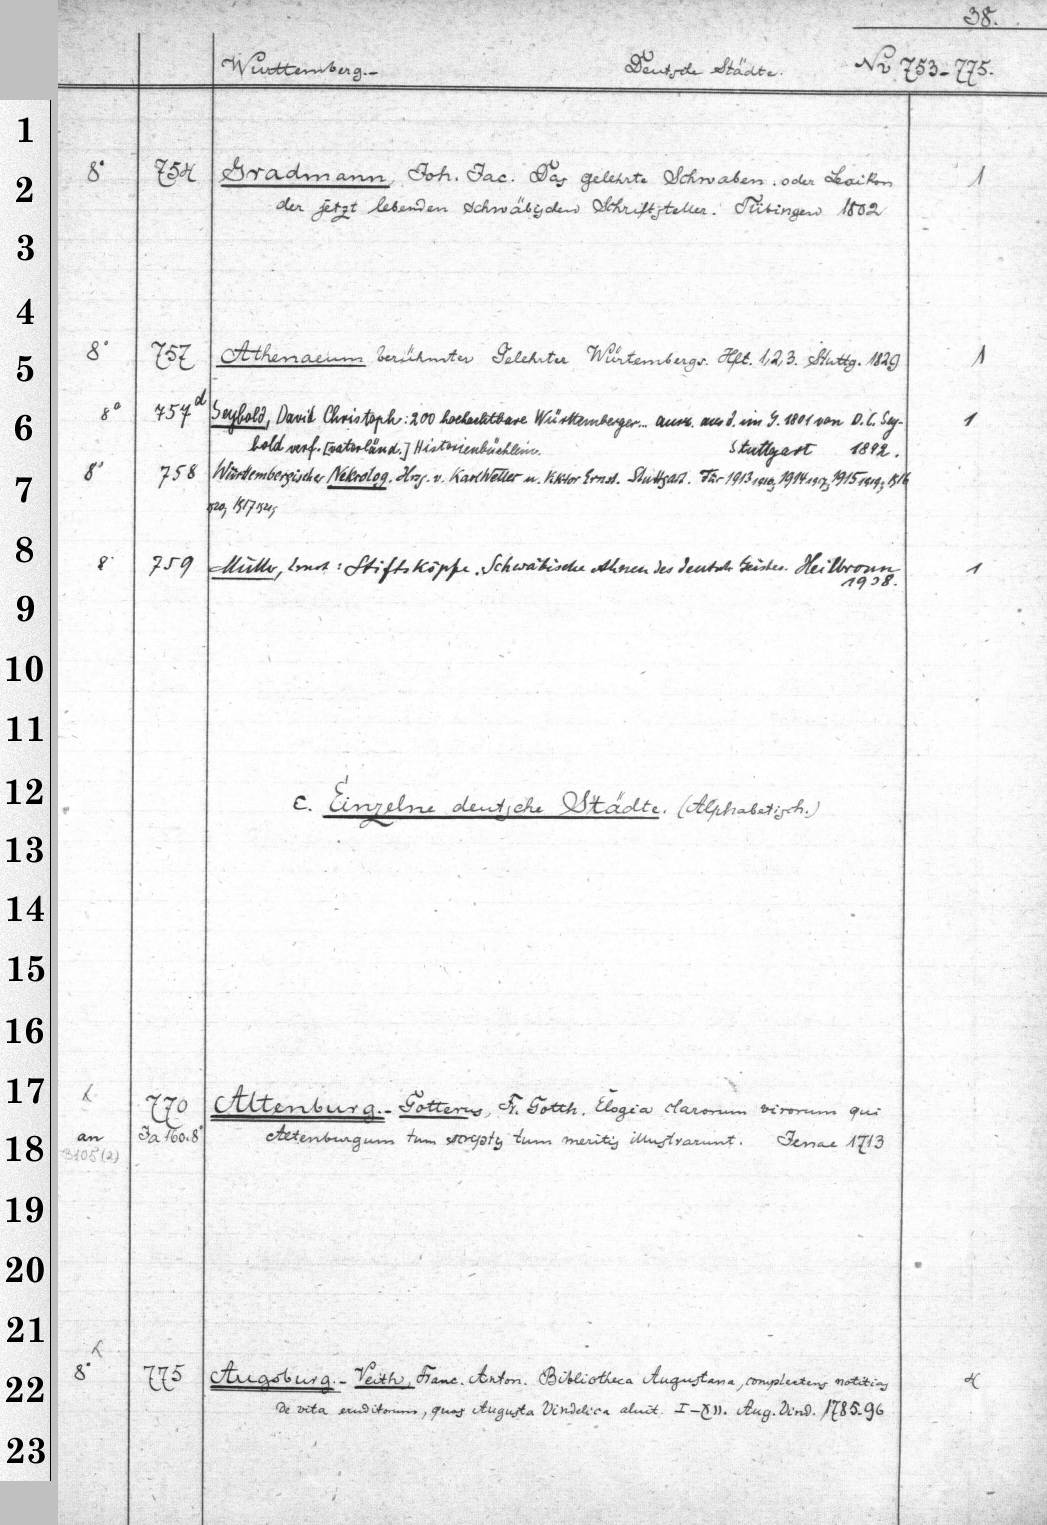 38.
Württemberg.- Deutsche Städte. No 753-775.
1
2
3
4
5
6
7
8
9
10
11
12
13
14
15
16
17
18
19
20
21
22
23
8° 754 Gradmann, Joh. Jac. Das gelehrte Schwaben. oder Lexikon 1
der jetzt lebenden schwäbischen Schriftsteller. Tübingen 1802
8° 757 Athenaeum berühmter Gelehrter Würtembergs. Hft. 1,2,3. Stuttg. 1829 1
8° 757d Seybold, David Christoph: 200 hochachtbare Württemberger... ausw. aus d. im J. 1801 von D. C. Sey- 1
bold verf. [vaterländ.] Historienbüchlein. Stuttgart 1892.
8° 758 Württembergischer Nekrolog. Hrsg. v. Karl Weller u. Viktor Ernst. Stuttgart. Für 1913 1914 1917, 1915 1919, 1916
1920, 1917 1921,
8° 759 Müller, Ernst: Stiftsköpfe. Schwäbische Ahnen des deutsch. Geistes. Heilbronn 1
1938.
c. Einzelne deutsche Städte. (Alphabetisch.)
770 Altenburg.- Gotterus, Fr. Gotth. Elogia clarorum virorum qui
an Ja 160.8° Altenburgum tum scriptis tum meritis illustrarunt. Jenae 1713
3105(2)
8° 775 Augsburg.- Veith, Franc. Anton. Bibliotheca Augustana, complectens notitias 4
de vita eruditorum, quos Augusta Vindelica aluit. I-XII. Aug. Vind. 1785-96